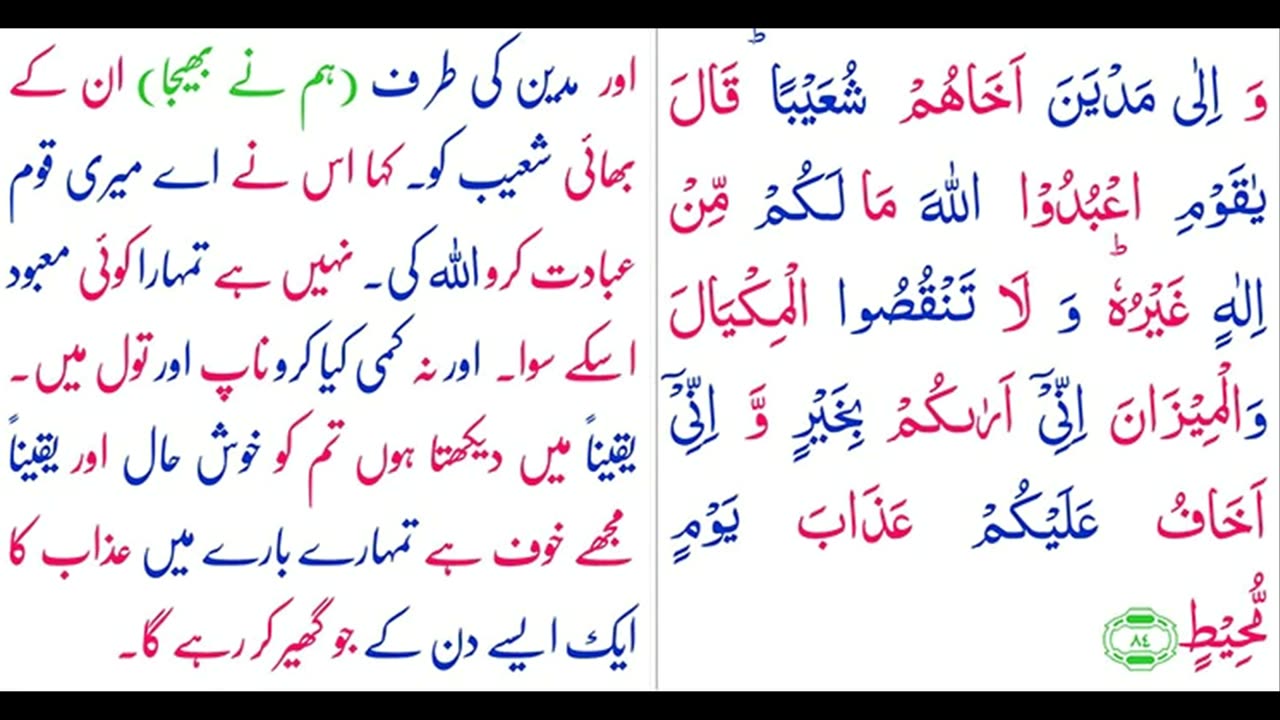 وَ اِلٰى مَدْيَنَ اَخَاهُمْ شُعَيْبًا ؕ قَالَ
يٰقَوْمِ اعْبُدُوْا اللّٰهَ مَا لَكُمْ مِّنْ
اِلٰهٍ غَيْرُهٗ ؕ وَ لَا تَنْقُصُوا الْمِكْيَالَ
وَالْمِيْزَانَ اِنِّيْۤ اَرٰىكُمْ بِخَيْرٍ وَّ اِنِّيْۤ
اَخَافُ عَلَيْكُمْ عَذَابَ يَوْمٍ
مُّحِيْطٍ ٨٤
اور مدین کی طرف (ہم نے بھیجا) ان کے
بھائی شعیب کو۔ کہا اس نے اے میری قوم
عبادت کرو اللہ کی۔ نہیں ہے تمہارا کوئی معبود
اسکے سوا۔ اور نہ کمی کیا کرو ناپ اور تول میں۔
یقیناً میں دیکھتا ہوں تم کو خوش حال اور یقیناً
مجھے خوف ہے تمہارے بارے میں عذاب کا
ایک ایسے دن کے جو گھیر کر رہے گا۔